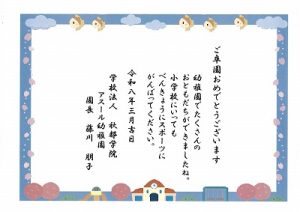 ご卒園おめでとうございます
幼稚園でたくさんの
おともだちができましたね。
小学校にいっても
べんきょうにスポーツに
がんばってください。
令和八年三月吉日
学校法人 秋都学院
アスール幼稚園
園長 藤川 朋子